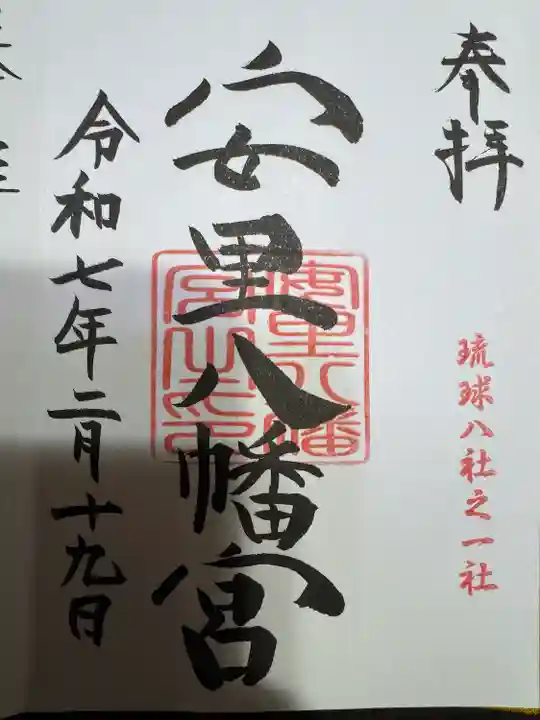 奉拝
琉球八社之一社
安里八幡宮
安里八幡
宮之印
令和七年二月十九日